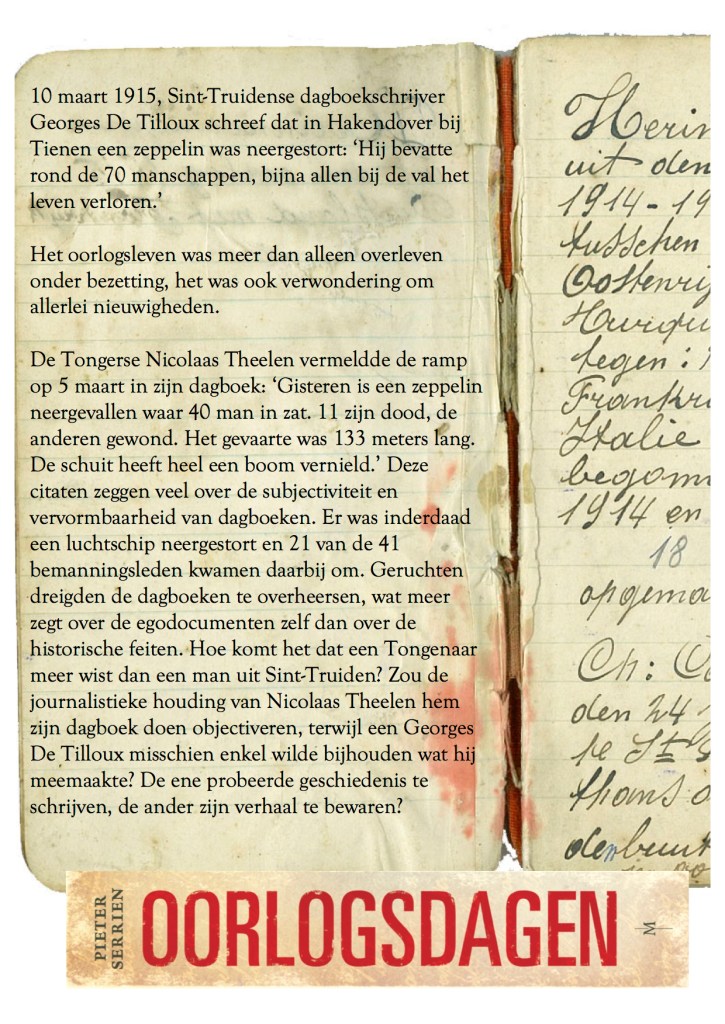 10 maart 1915, Sint-Truidense dagboekschrijver
Georges De Tilloux schreef dat in Hakendover bij
Tienen een zeppelin was neergestort: ‘Hij bevatte
rond de 70 manschappen, bijna allen bij de val het
leven verloren.’
Het oorlogsleven was meer dan alleen overleven
onder bezetting, het was ook verwondering om
allerlei nieuwigheden.
De Tongerse Nicolaas Theelen vermeldde de ramp
op 5 maart in zijn dagboek: ‘Gisteren is een zeppelin
neergevallen waar 40 man in zat. 11 zijn dood, de
anderen gewond. Het gevaarte was 133 meters lang.
De schuit heeft heel een boom vernield.’ Deze
citaten zeggen veel over de subjectiviteit en
vervormbaarheid van dagboeken. Er was inderdaad
een luchtschip neergestort en 21 van de 41
bemanningsleden kwamen daarbij om. Geruchten
dreigden de dagboeken te overheersen, wat meer
zegt over de egodocumenten zelf dan over de
historische feiten. Hoe komt het dat een Tongenaar
meer wist dan een man uit Sint-Truiden? Zou de
journalistieke houding van Nicolaas Theelen hem
zijn dagboek doen objectiveren, terwijl een Georges
De Tilloux misschien enkel wilde bijhouden wat hij
meemaakte? De ene probeerde geschiedenis te
schrijven, de ander zijn verhaal te bewaren?
Herin
uit den
1914-19
tusschen
Oostenrij
tegen:
Frankr
Italie
begonn
1914 en
18
opgema
Ch:
den 24
te St
thans
PIETER
SERRIEN
OORLOGSDAGEN
M